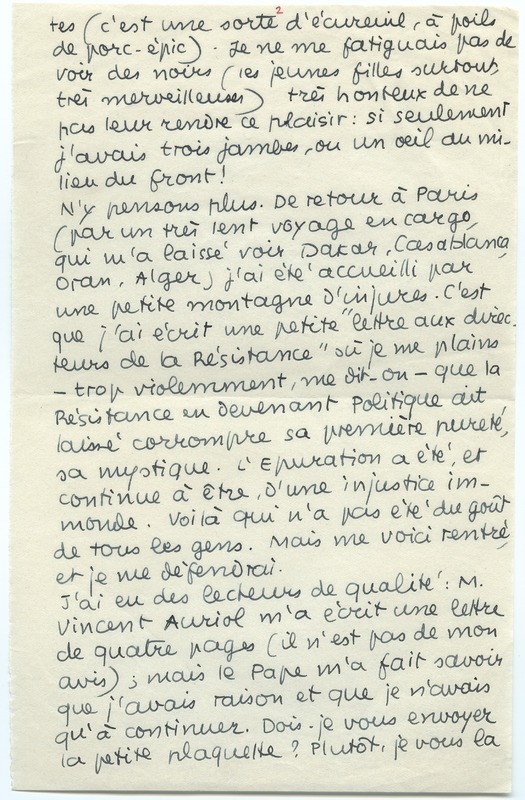 2
tes (c'est une sorte d'écureuil, à poils
de porc-épic). Je ne me fatiguais pas de
voir des noirs (les jeunes filles surtout,
très merveilleuses) très honteux de ne
pas leur rendre ce plaisir : si seulement
j'avais trois jambes, ou un oeil au mi-
lieu du front !
N'y pensons plus. De retour à Paris
(par un très lent voyage en cargo,
qui m'a laissé voir Dakar, Casablanca,
Oran, Alger) j'ai été accueilli par
une petite montagne d'injures. C'est
que j'ai écrit une petite "lettre aux direc-
teurs de la Résistance" où je me plains
– trop violemment, me dit-on – que la
Résistance en devenant Politique ait
laissé corrompre sa première pureté,
sa mystique. L'Epuration a été, et
continue à être, d'une injustice im-
monde. Voilà qui n'a pas été du goût
de tous les gens. Mais me voici rentré,
et je me défendrai.
J'ai eu des lecteurs de qualité : M.
Vincent Auriol m'a écrit une lettre
de quatre pages (il n'est pas de mon
avis) ; mais le Pape m'a fait savoir
que j'avais raison et que je n'avais
qu'à continuer. Dois-je vous envoyer
la petite plaquette ? Plutôt, je vous la